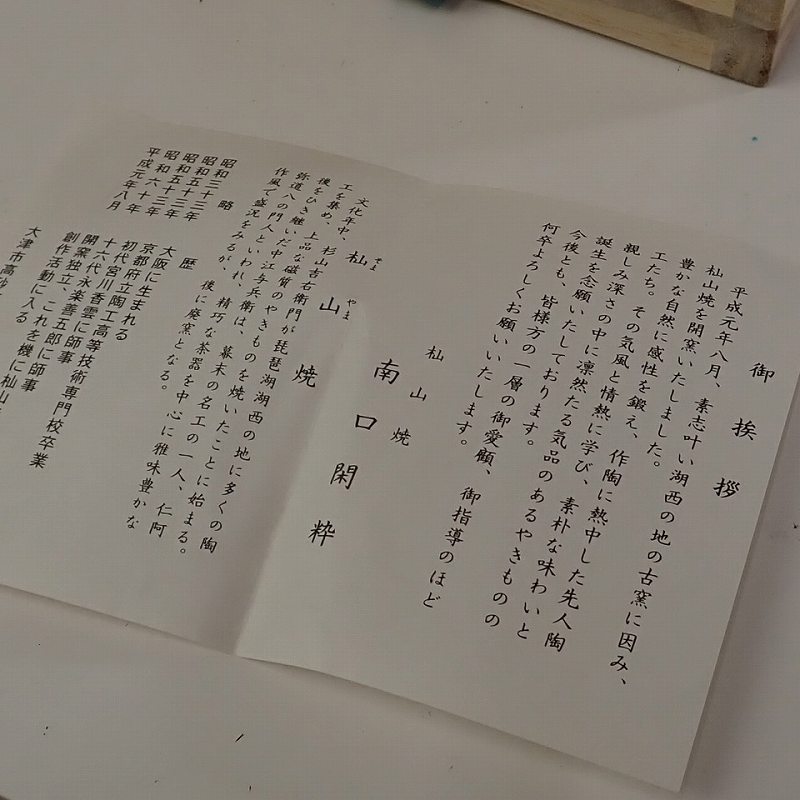 御挨拶
平成元年八月、素志叶い湖西の地の古窯に因み、
杣山焼を開窯いたしました。
豊かな自然に感性を鍛え、作陶に熱中した先人陶
工たち。その気風と情熱に学び、素朴な味わいと
親しみ深さの中に凛然たる気品のあるやきものの
誕生を念願いたしております。
今後とも、皆様方の一層の御愛顧、御指導のほど
何卒よろしくお願いいたします。
杣山焼
南口閑粋
杣山焼
そまやま
文化年中、杉山吉右衛門が琵琶湖湖西の地に多くの陶
工を集め、上品な磁質のやきものを焼いたことに始まる。
後をひき継いだ中江与兵衛は、幕末の名工の一人、仁阿
弥道八の門人といわれ、精巧な茶器を中心に雅味豊かな
作風で盛況をみるが、後に廃窯となる。
略歴
昭和三十三年 大阪に生まれる
昭和五十三年 京都府立陶工高等技術専門校卒業
昭和五十三年 初代宮川香雲に師事
昭和六十年 十六代永楽善五郎に師事
平成元年八月 開窯独立、これを機に杣山
創作活動に入る
大津市高砂